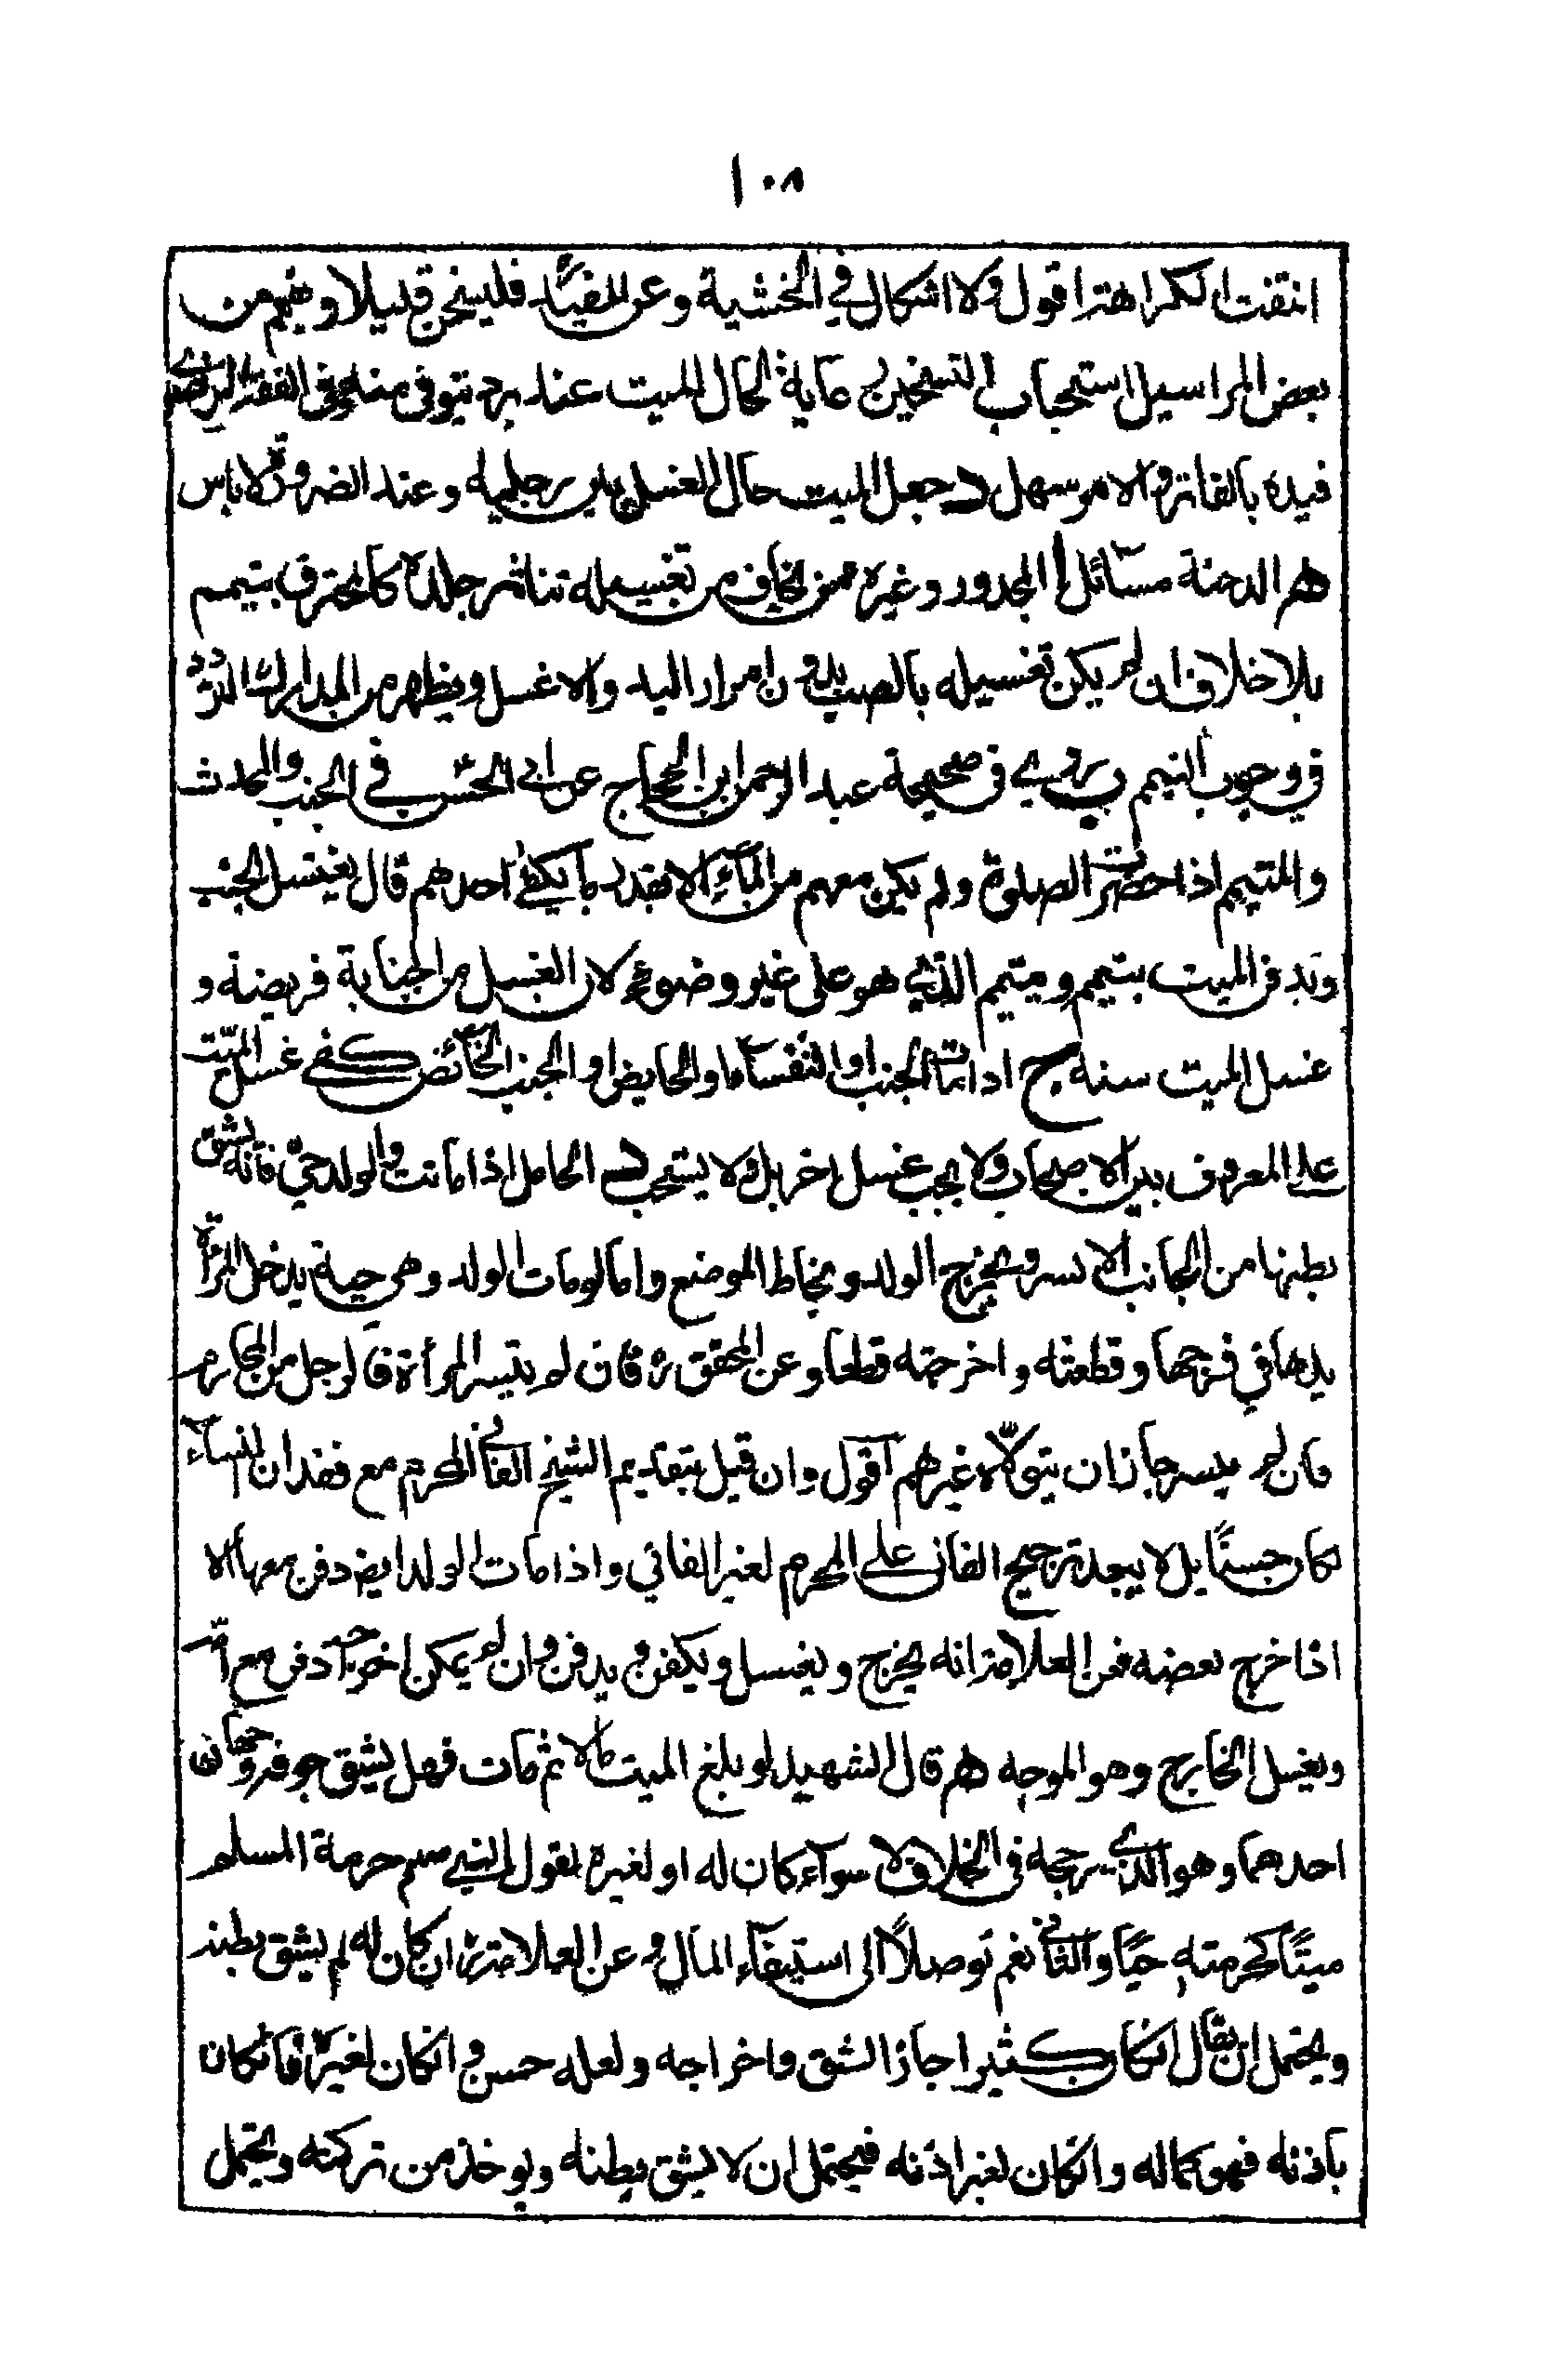 ١٠٨
انتفت الكراهة اقول ولا اشكال في الخشية وعن المفيد فليسخن قليلا ويفهم من
بعض المراسيل استحباب التسخين رعاية لحال الميت عند برد يتوقى منه وفي الفقه الرضوي
قيده بالفاتر والامر سهل د جعل الميت حال الغسل بين رجليه وعند الضرورة لا باس
هر الدجنة مسائل ا المجدور وغيره ممن يخاف من تغسيله تناثر جلده كالمحترق يتيمم
بلا خلاف ان لم يكن تغسيله بالصب بدون امرار اليد والا غسل ويظهر من المدارك التردد
في وجوب التيمم ب روى في صحيحة عبد الرحمن ابن الحجاج عن ابي الحسن في الجنب والمحدث
والمتيمم اذا حضرت الصلوة ولم يكن معهم من الماء الا بقدر ما يكفي احدهم قال يغتسل الجنب
ويدفن الميت بتيمم ويتيمم الذي هو على غير وضوء لان الغسل من الجنابة فريضة و
غسل الميت سنة ج اذا مات الجنب او النفساء او الحايض او الجنب الحائض كفى غسل الميت
على المعروف بين الاصحاب ولا يجب غسل اخر بل ولا يستحب د الحامل اذا ماتت والولد حي فانه يشق
بطنها من الجانب الايسر ويخرج الولد ويخاط الموضع واما لو مات الولد وهي حية يدخل المرأة
يدها في فرجها وقطعته واخرجته قطعا وعن المحقق ره فان لم يتيسر المرأة فالرجل من المحارم
فان لم يتيسر جاز ان يتولاه غيرهم اقول وان قيل بتقديم الشيخ الفاني المحرم مع فقدان النساء
لكان حسنا بل لا يبعد ترجيح الفاني على المحرم لغير الفاني واذا مات الولد ايض دفن معها الا
اذا خرج بعضه فعن العلامة انه يخرج ويغسل ويكفن ويدفن وان لم يمكن اخراجه دفن مع امه
ويغسل الخارج وهو الموجه هر قال الشهيد لو بلغ الميت مالا ثم مات فهل يشق جوفه وجهان
احدهما وهو الذي رجحه في الخلاف لا سواء كان له او لغيره لقول النبي صلم حرمة المسلم
ميتا كحرمته حيا والثاني نعم توصلا الى استيفاء المال وعن العلامة ره ان كان له لم يشق بطنه
ويحتمل ان يقال ان كان كثيرا جاز الشق واخراجه ولعله حسن وان كان لغيره فان كان
باذنه فهو كماله وان كان لغير اذنه فيحتمل ان لا يشق بطنه ويوخذ من تركته ويحتمل